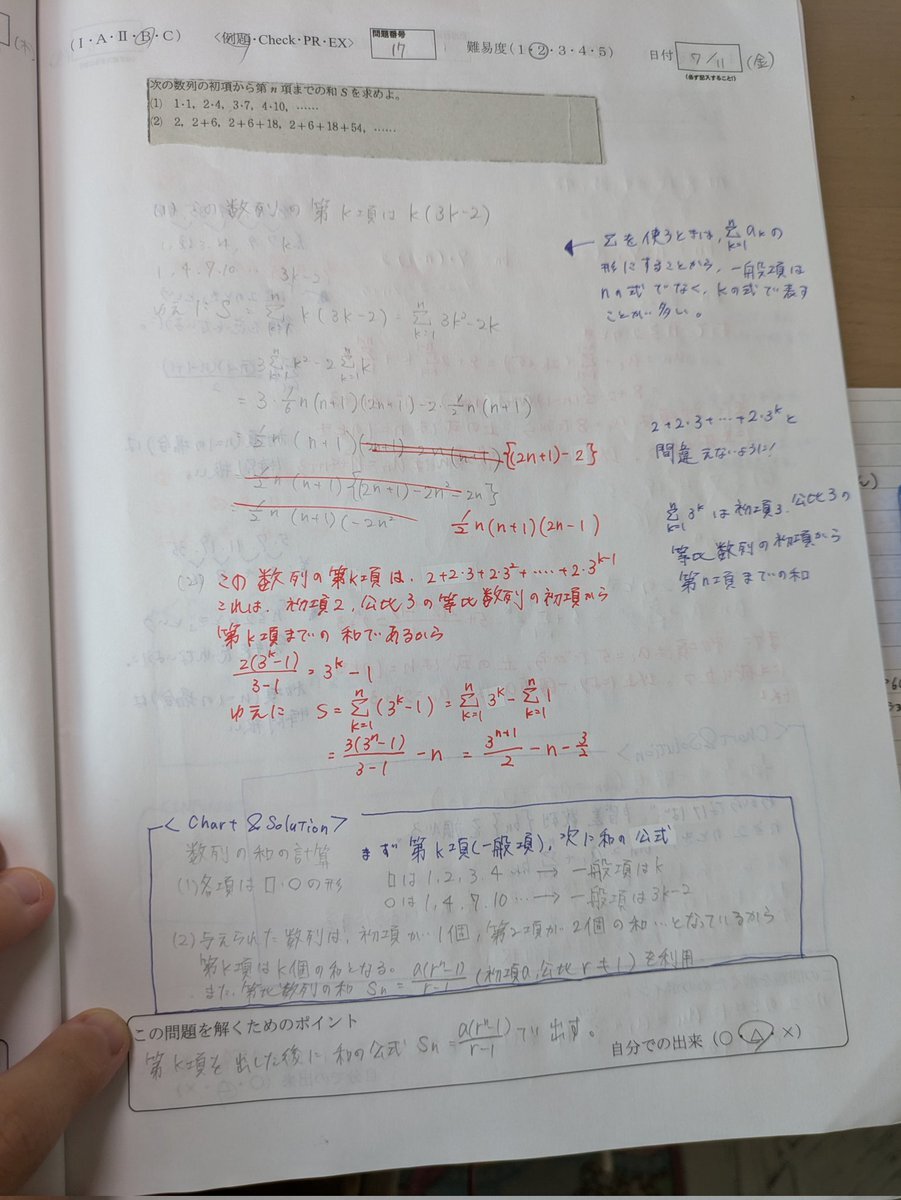 (I・A・II・B・C) 〈例題・Check・PR・EX〉 問題番号 17 難易度(1・2・3・4・5) 日付 7/11 (金)
(必ず記入すること!)
次の数列の初項から第 n 項までの和 S を求めよ。
(1) 1・1, 2・4, 3・7, 4・10, ……
(2) 2, 2+6, 2+6+18, 2+6+18+54, ……
の数列の第k項は k(3k-2)
1, 4, 7, 10 3k-2
ゆえに S = Σ[k=1→n] k(3k-2) Σ[k=1→n] 3k²-2k
3Σ[k=1→n] k² - 2Σ[k=1→n] k
= 3・1/6 n(n+1)(2n+1) - 2・1/2 n(n+1)
1/2 n(n+1) {(2n+1)-2}
= 1/2 n(n+1){(2n+1)-2n²-2n}
= 1/2 n(n+1)(-2n²
1/2 n(n+1)(2n-1)
← Σを使うときは, Σ[k=1→n] akの
形にすることから, 一般項は
nの式でなく, kの式で表す
ことが多い。
2+2・3+…+2・3^k と
間違えないように!
Σ[k=1→n] 3^k は初項3, 公比3の
等比数列の初項から
第n項までの和
(2) この数列の第k項は, 2+2・3+2・3²+……+2・3^(k-1)
これは, 初項2, 公比3の等比数列の初項から
第k項までの和であるから
2(3^k-1)/(3-1) = 3^k-1
ゆえに S = Σ[k=1→n] (3^k-1) = Σ[k=1→n] 3^k - Σ[k=1→n] 1
= 3(3^n-1)/(3-1) - n = 3^(n+1)/2 - n - 3/2
<Chart & Solution>
数列の和の計算 まず第k項(一般項), 次に和の公式
(1)各項は□・○の形 □は1, 2, 3, 4 … → 一般項はk
○は1, 4, 7, 10 … → 一般項は3k-2
(2)与えられた数列は, 初項が1個, 第2項が2個の和…となっているから
第k項はk個の和となる。
また, 等比数列の和 Sn = a(r^n-1)/(r-1) (初項a, 公比r≠1)を利用
この問題を解くためのポイント
第k項を出した後に和の公式 Sn = a(r^n-1)/(r-1) で出す。
自分での出来 (○・△・×)